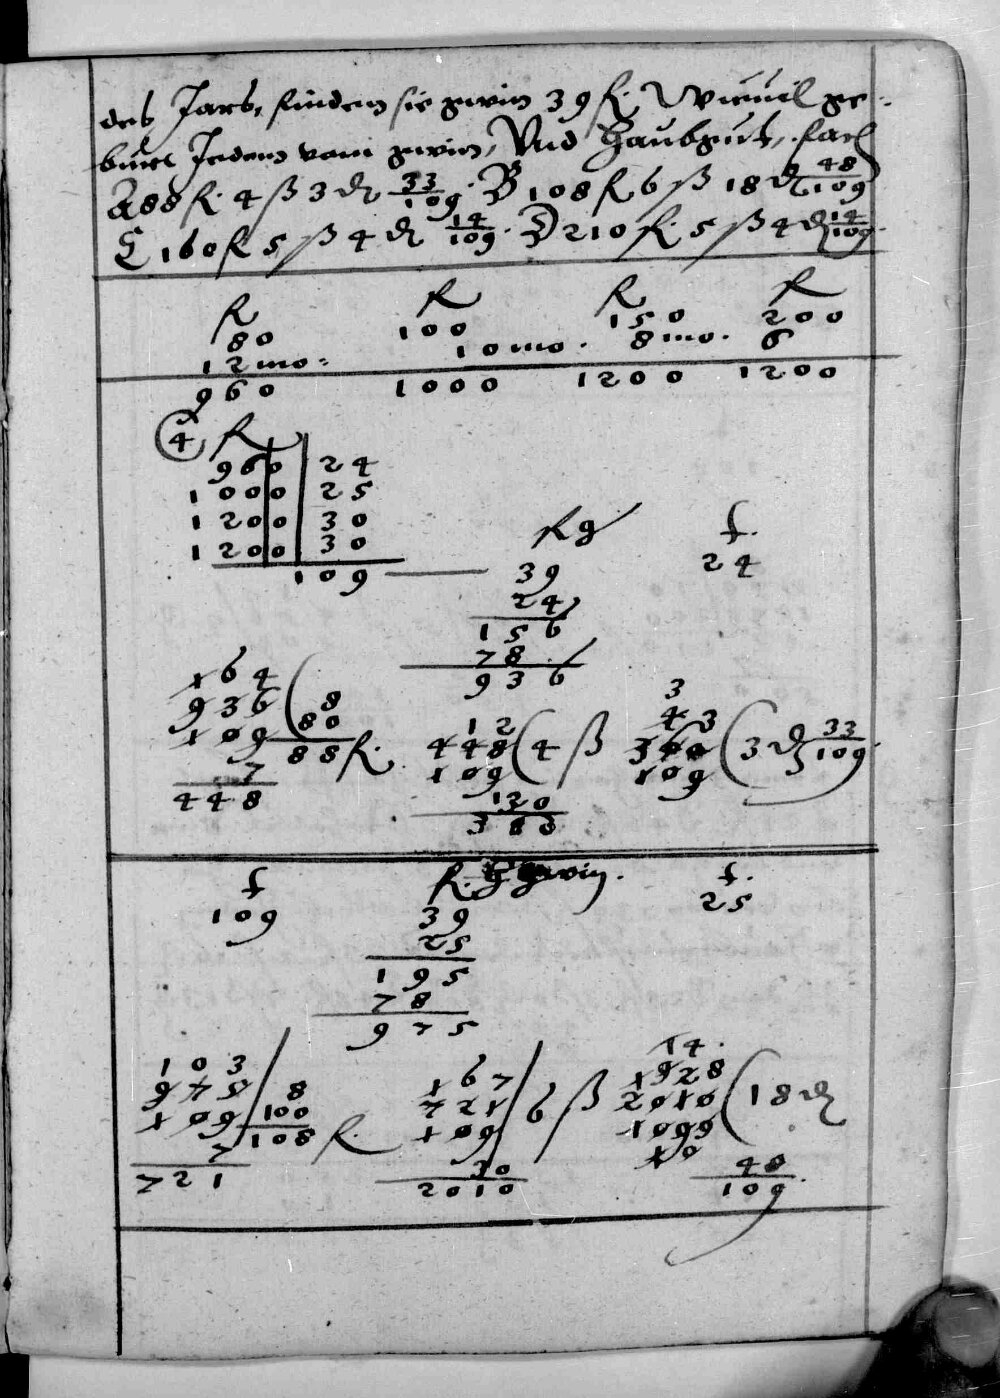 des Jars, finden sie gwin 39 fl. Wieuil ge-
burt Jedem vom gwin, Und Haubtgut, fac
A 88 fl. 4 ß 3 ₰ 33/109. B 108 fl 6 ß 18 ₰ 48/109
C 160 fl 5 ß 4 ₰ 14/109. D 210 fl. 5 ß 4 ₰ 14/109.
fl fl fl fl
80 100 150 200
12 mo: 10 mo. 8 mo. 6
960 1000 1200 1200
4 fl
960 24
1000 25
1200 30
1200 30
109 — 39 24
fl g f.
24
156
78
936
164
936 ( 8
109 80
88 fl.
7
448
12
448 ( 4 ß
109
120
360
3
43
360 ( 3 ₰ 33/109.
109
f fl. gwin. f.
109 39 25
25
195
78
975
103
975 / 8
109 100
108 fl.
7
721
167
721 / 6 ß
109
30
2010
14.
1928
2010 ( 18 ₰
1099
10
48/109.